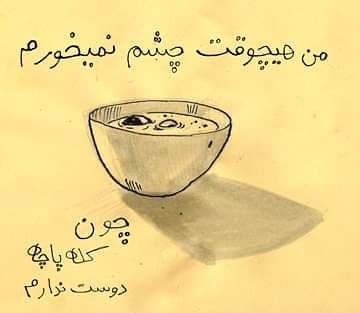 من هیچوقت چشم نمیخورم
چون
کله پاچه
دوست ندارم